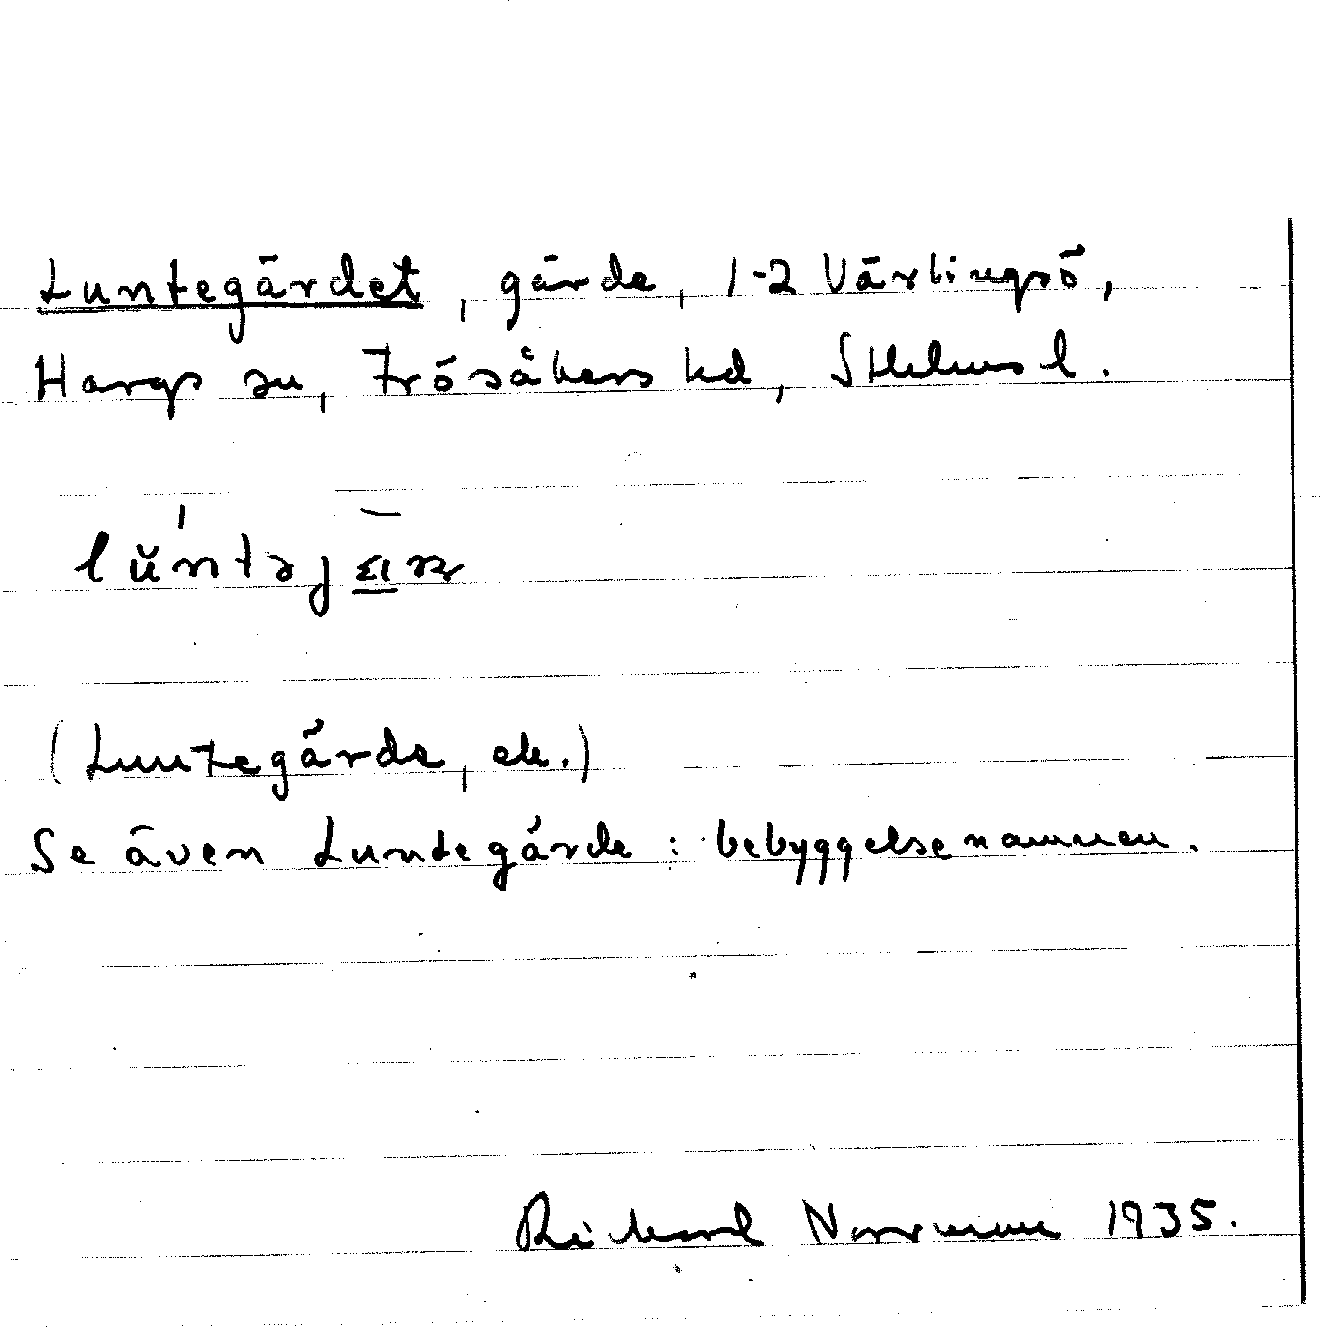 Luntegärdet, gärde, 1-2 Värlingsö,
Hargs sn, Frösåkers hd, Sthlms l.
(Luntegärde, ek.)
Se även Luntegärde : bebyggelsenamnen.
Rickard Norrman 1935.